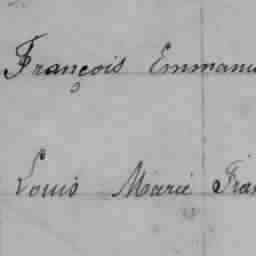 François Emmanu
Louis Marie Fran